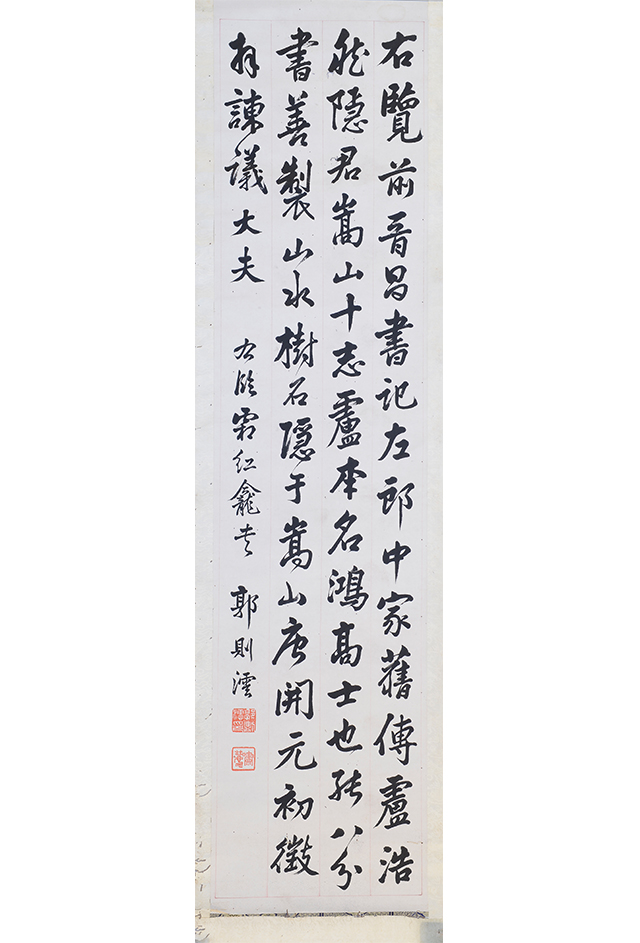 右覽前晉昌書記左郎中家舊傳盧浩
然隱君嵩山十志盧本名鴻高士也能八分
書善製山水樹石隱于嵩山唐開元初徵
拜諫議大夫 右臨霜紅龕 郭則澐